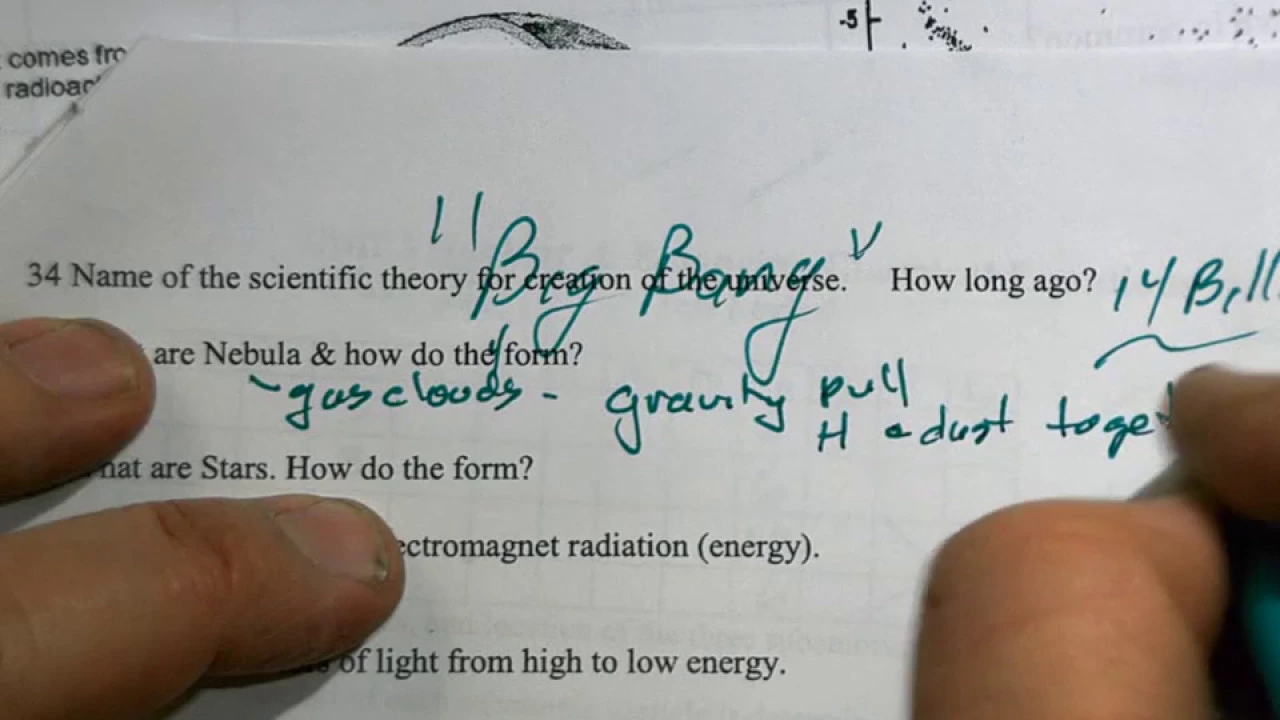 -5
comes fro
radioac
Big Bang
34 Name of the scientific theory for creation of the universe. How long ago? 14 Bill
are Nebula & how do they form?
gas clouds - gravity pull
H & dust toget
hat are Stars. How do the form?
ectromagnet radiation (energy).
of light from high to low energy.